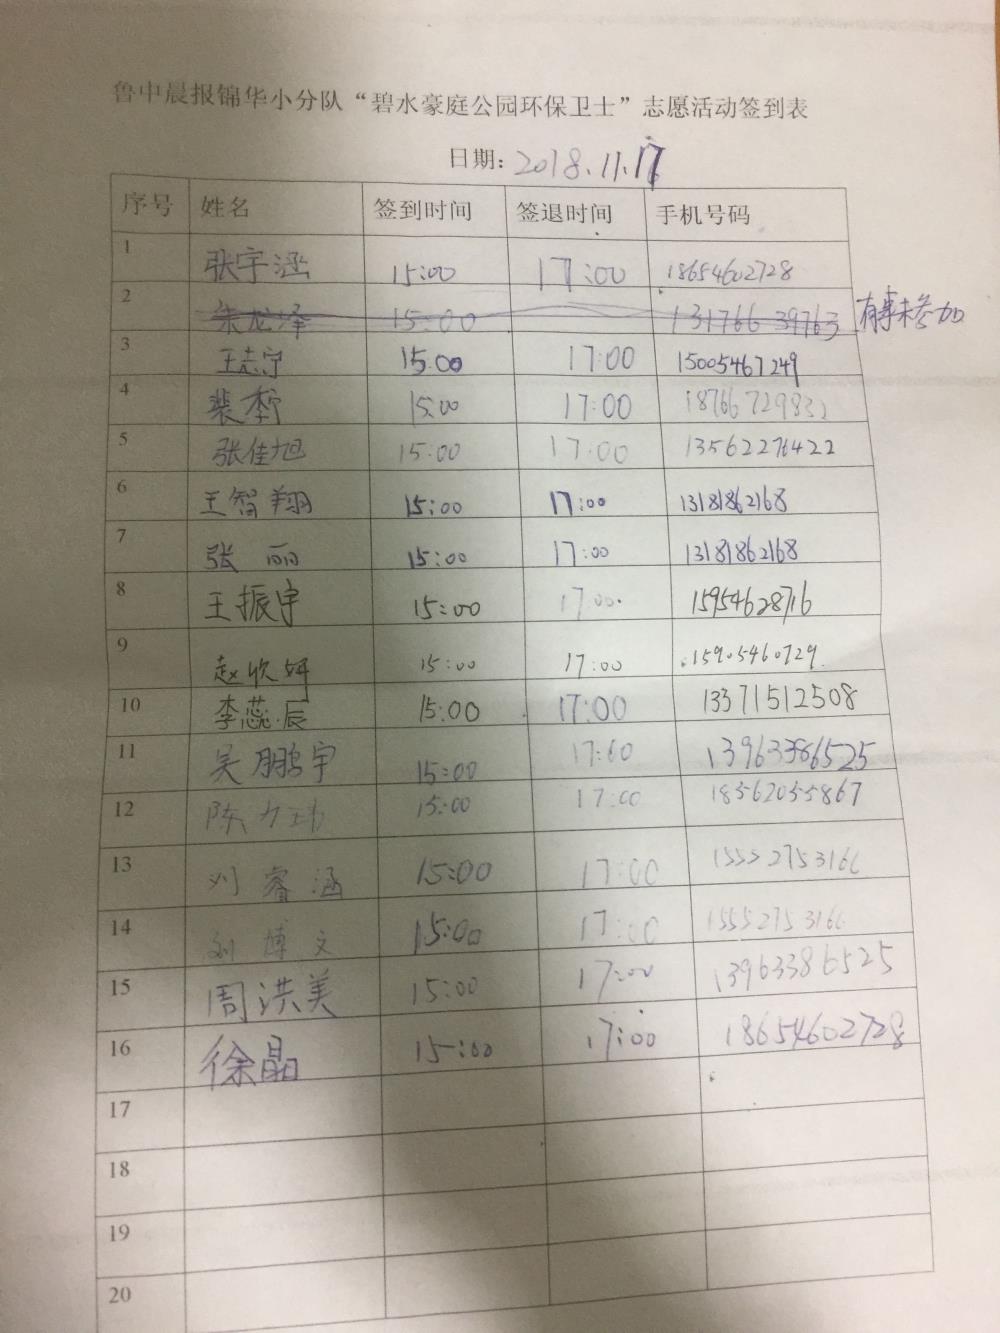 鲁中晨报锦华小分队“碧水豪庭公园环保卫士”志愿活动签到表
日期：2018.11.17
序号 姓名 签到时间 签退时间 手机号码
1 张宇涵 15:00 17:00 18654602728
2 朱龙泽 15:00 13176639763 有事未参加
3 王志宁 15:00 17:00 15005467249
4 15:00 17:00
5 张佳旭 15:00 17:00 13562276422
6 王智翔 15:00 17:00 13181862168
7 张丽 15:00 17:00 13181862168
8 王振宇 15:00 17:00 15954628716
9 赵欣妍 15:00 17:00 15905460729
10 李蕊辰 15:00 17:00 13371512508
11 吴鹏宇 15:00 17:00 13963386525
12 陈力玮 15:00 17:00 18562055867
13 刘睿涵 15:00 17:00 15552753166
14 刘博文 15:00 17:00 15552753166
15 周洪美 15:00 17:00 13963386525
16 徐晶 15:00 17:00 18654602728
17
18
19
20